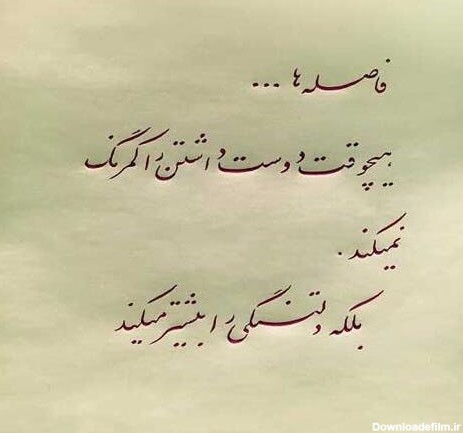 فاصله ها ...
هیچوقت دوست داشتن را کمرنگ
نمیکند .
بلکه دلتنگی را بیشتر میکند
Downloadefilm.ir